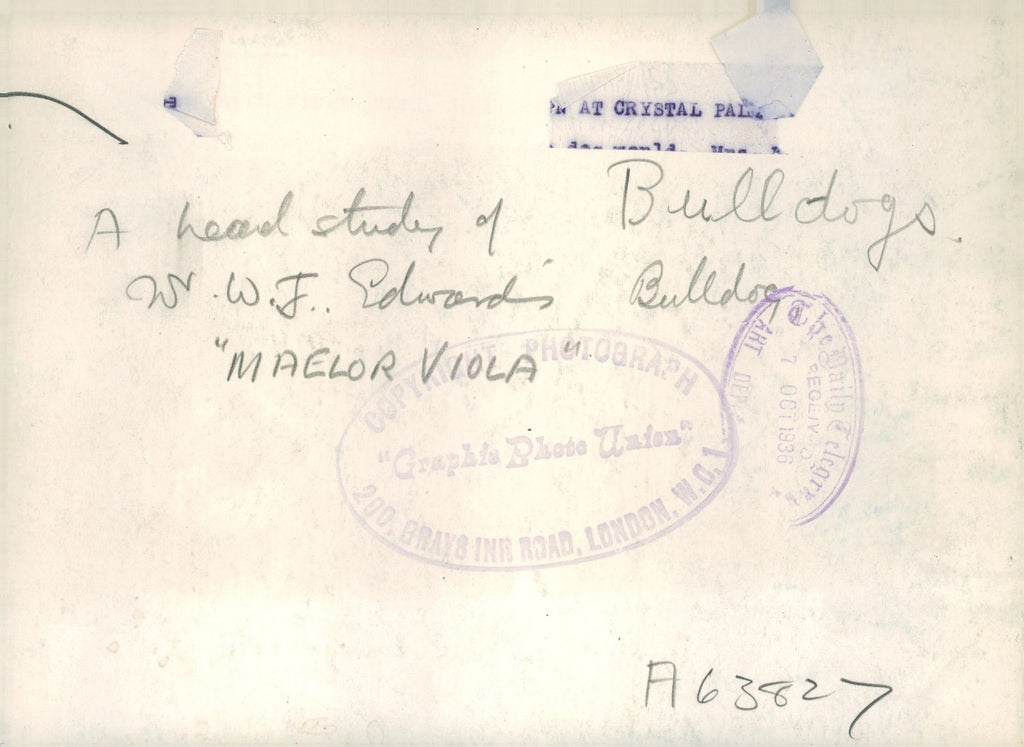 AT CRYSTAL PAL
Bulldogs.
A head study of
Mr W.J. Edwards's Bulldog
"MAELOR VIOLA"
COPYRIGHT PHOTOGRAPH
"Graphic Photo Union"
200, GRAYS INN ROAD, LONDON, W.C.1
The Daily Telegraph
RECEIVED
7 OCT 1936
ART DEP
A63827